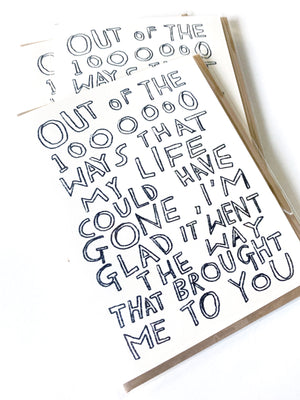 OUT OF THE
1000000
WAYS THAT
MY LIFE
COULD HAVE
GONE, I'M
GLAD IT WENT
THE WAY
THAT BROUGHT
ME TO YOU
OUT OF THE
1000000